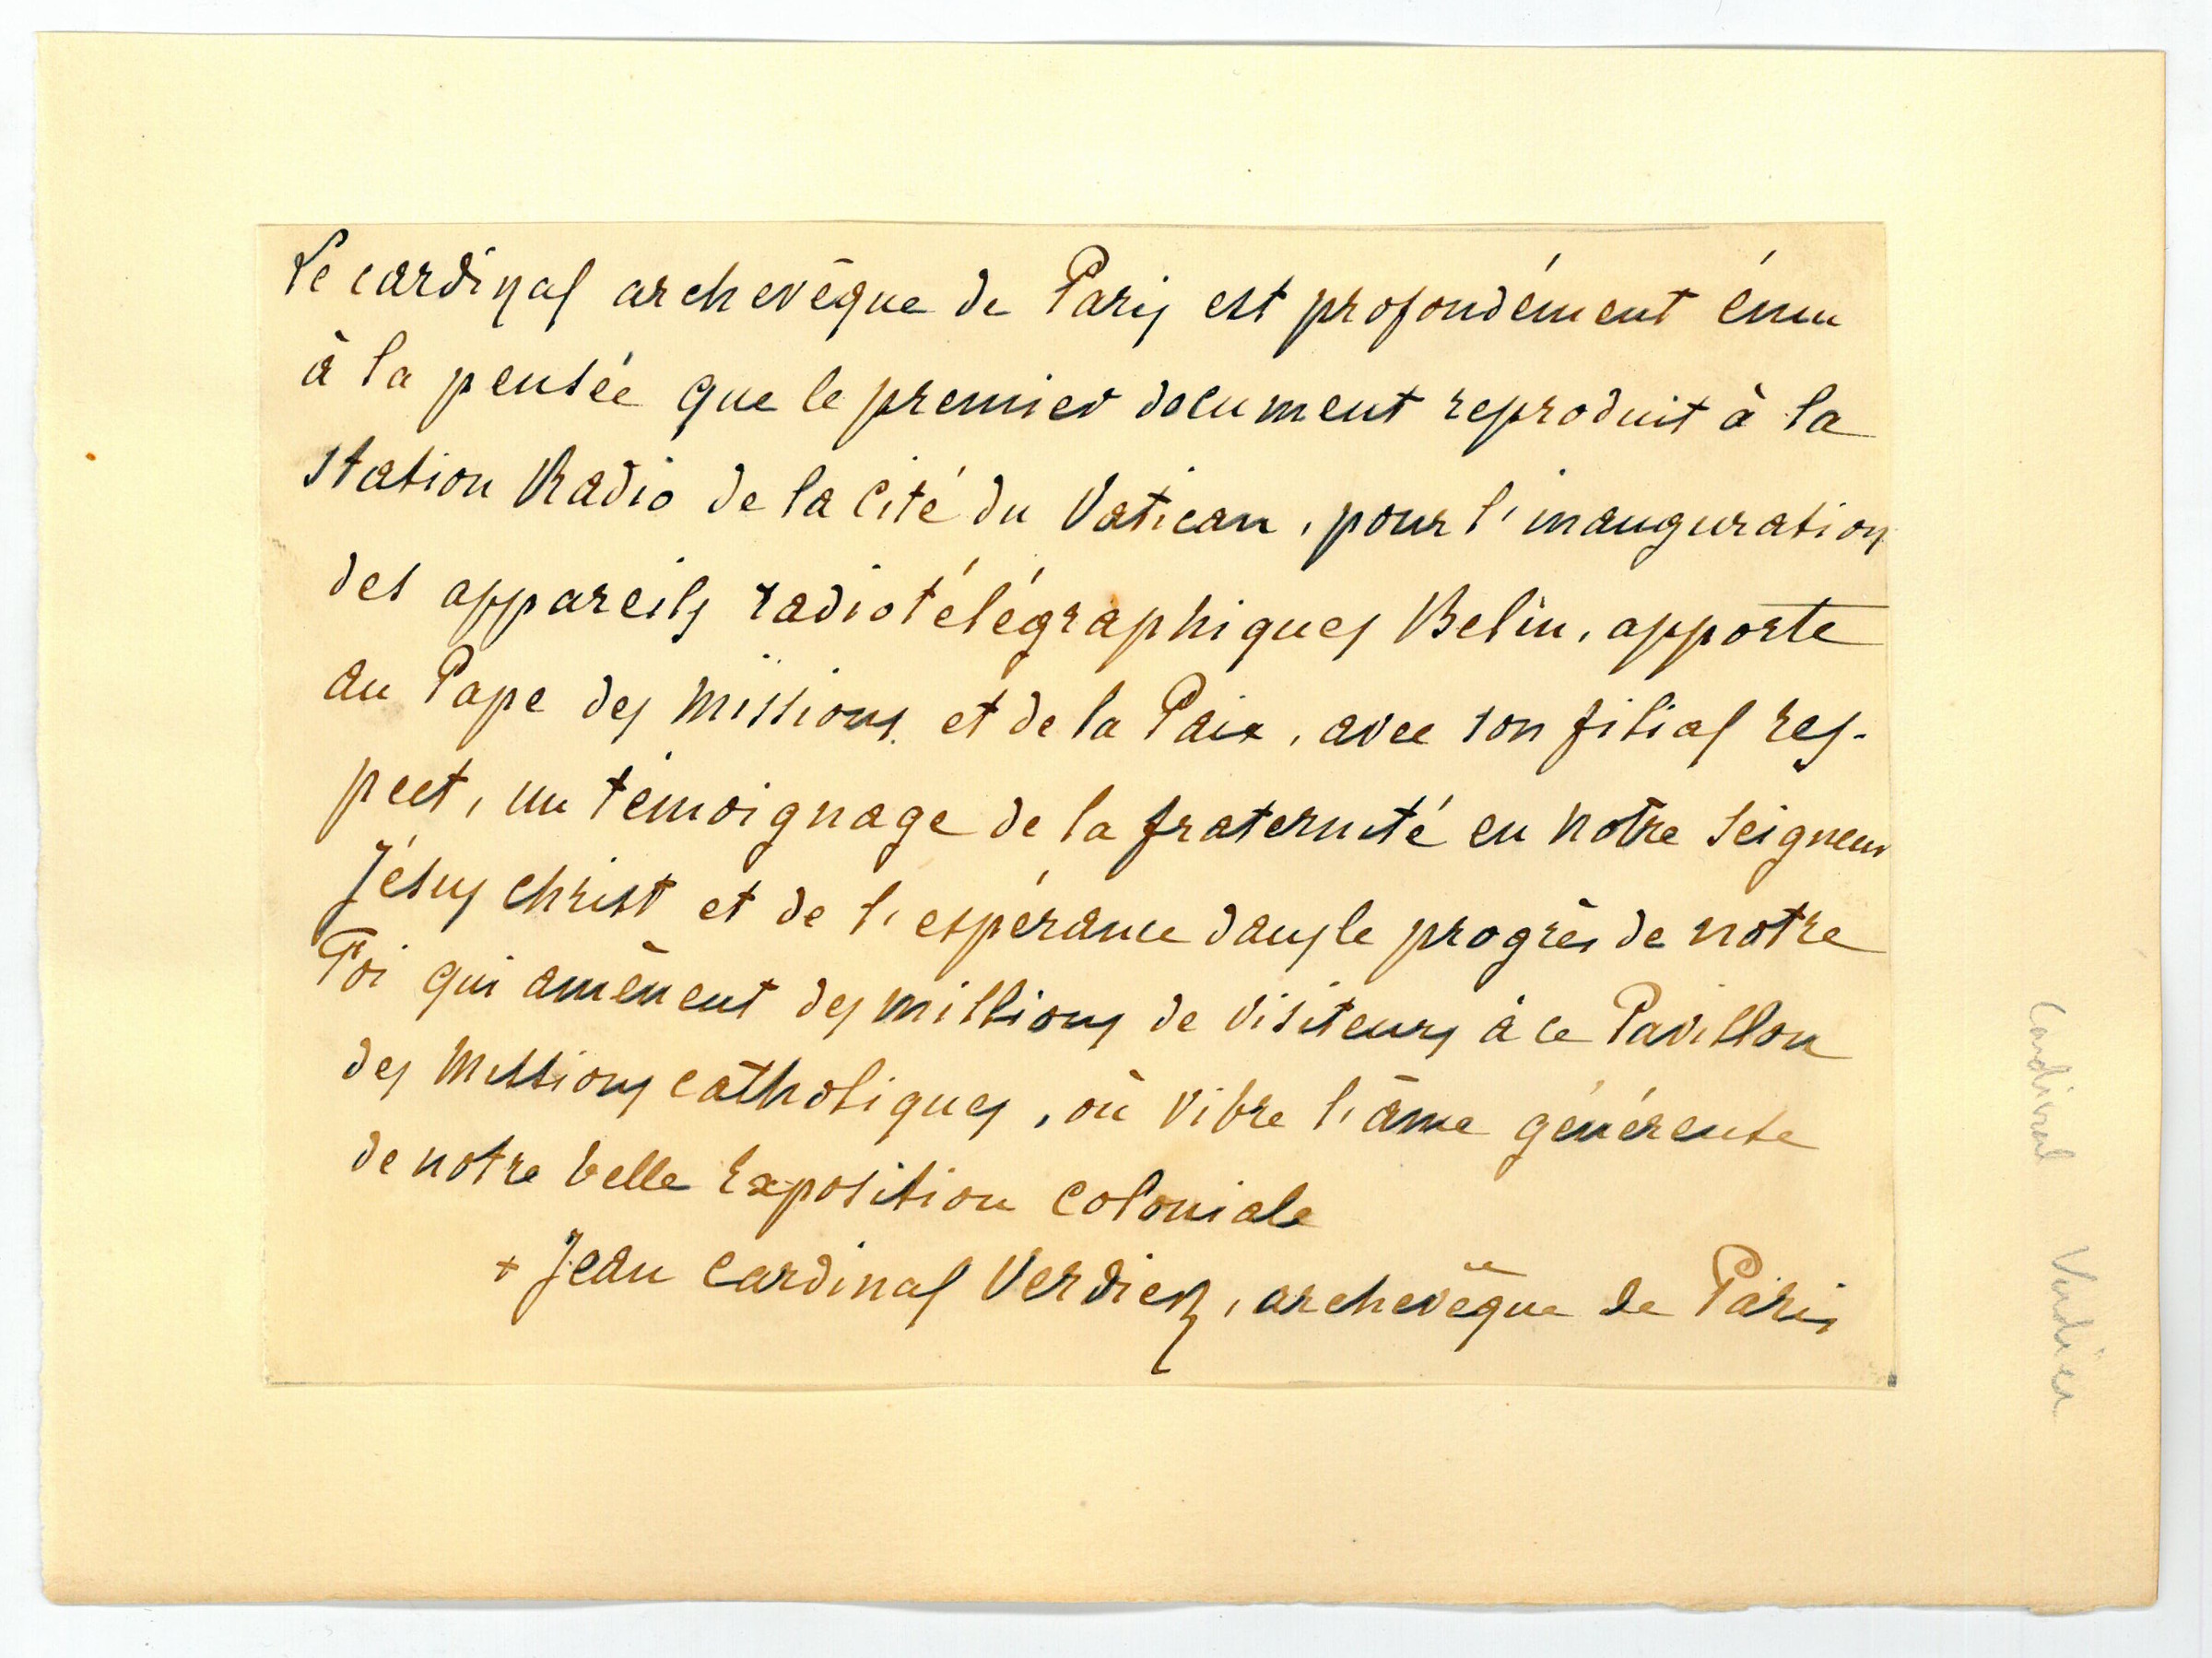 Le cardinal archevêque de Paris est profondément ému
à la pensée que le premier document reproduit à la
station Radio de la Cité du Vatican, pour l'inauguration
des appareils radiotélégraphiques Belin, apporte
au Pape des Missions et de la Paix, avec son filial res-
pect, un témoignage de la fraternité en Notre Seigneur
Jésus Christ et de l'espérance dans le progrès de notre
Foi qui amènent des millions de visiteurs à ce Pavillon
des Missions catholiques, où vibre l'âme généreuse
de notre belle Exposition Coloniale
+ Jean Cardinal Verdier, archevêque de Paris
Cardinal Verdier